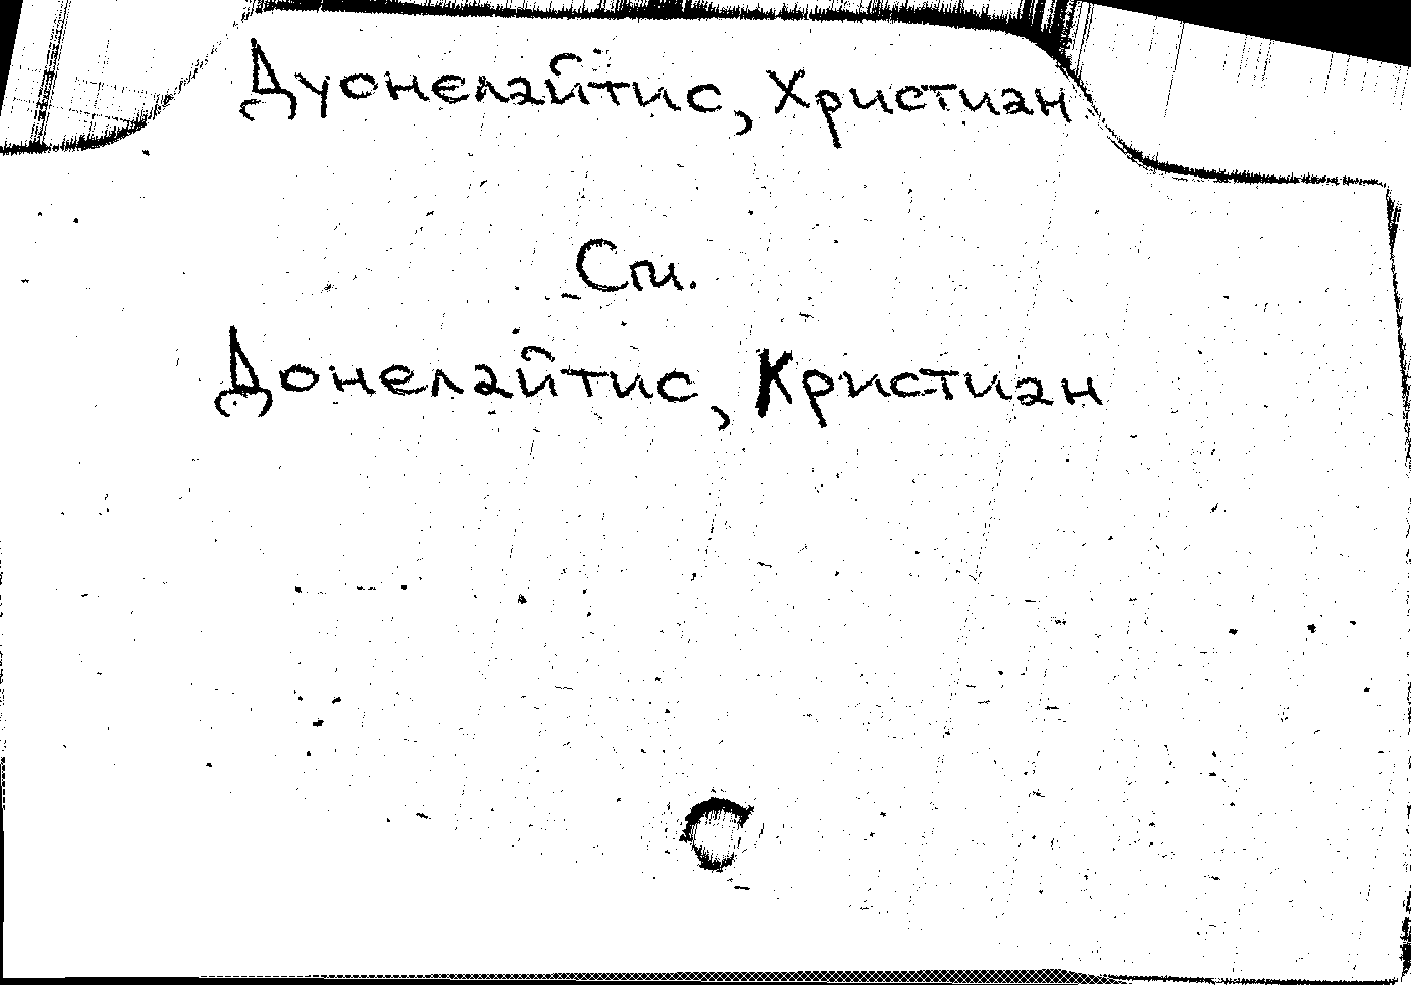 Дуонелайтис, Христиан
См.
Донелайтис, Кристиан